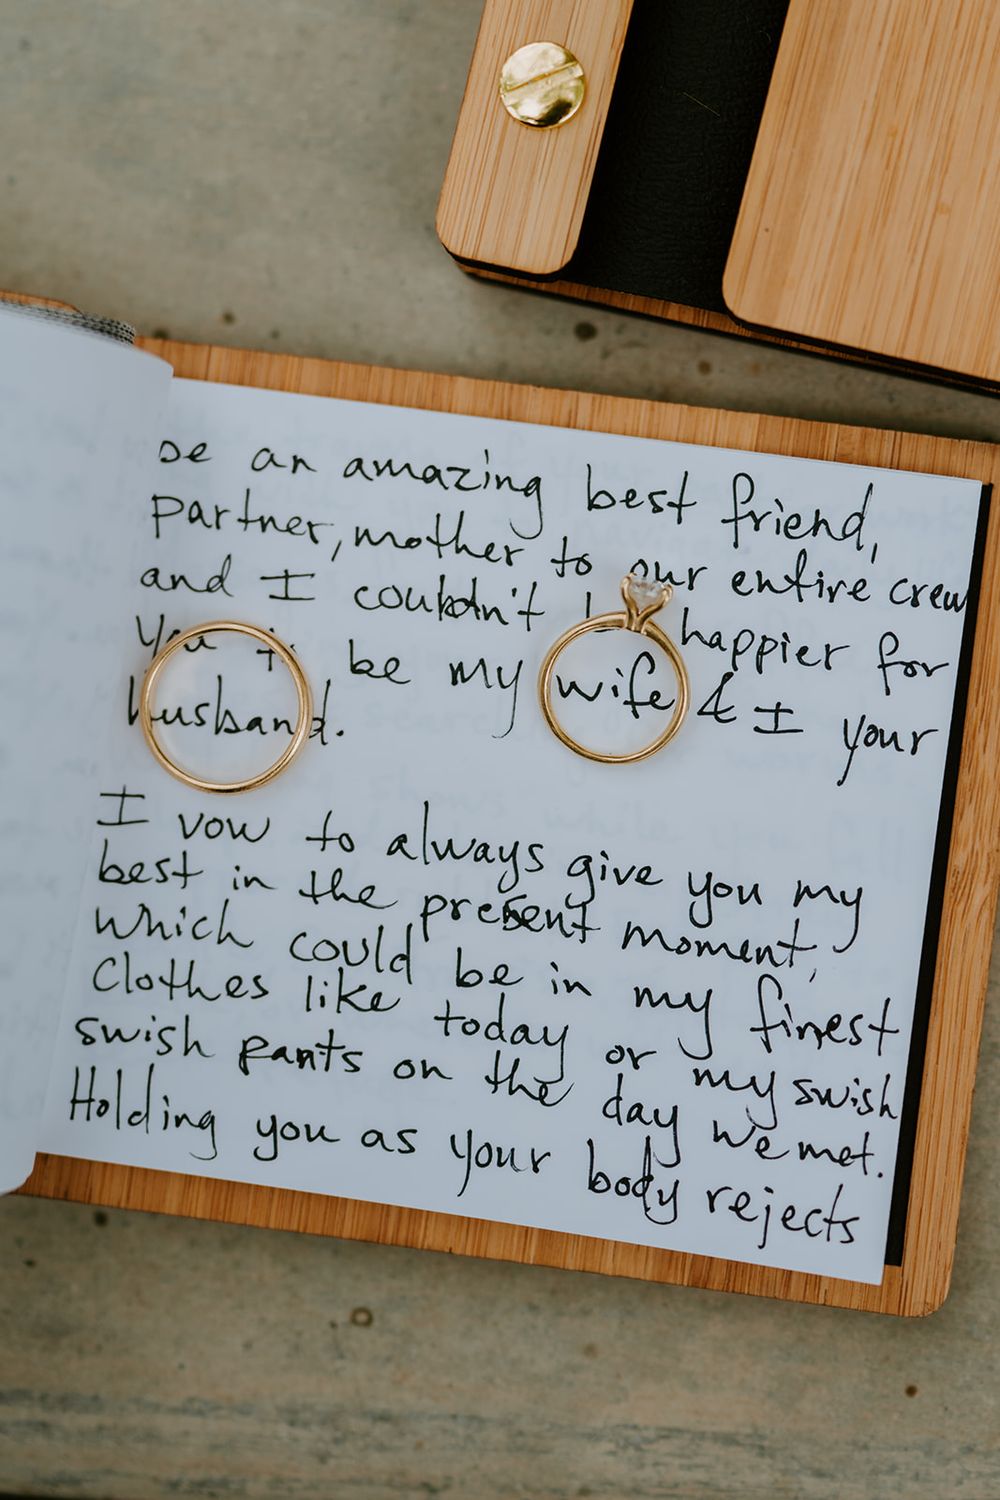 be an amazing best friend,
partner, mother to our entire crew
and I couldn't be happier for
you to be my wife & I your
husband.
I vow to always give you my
best in the present moment,
which could be in my finest
clothes like today or my swish
swish pants on the day we met.
Holding you as your body rejects